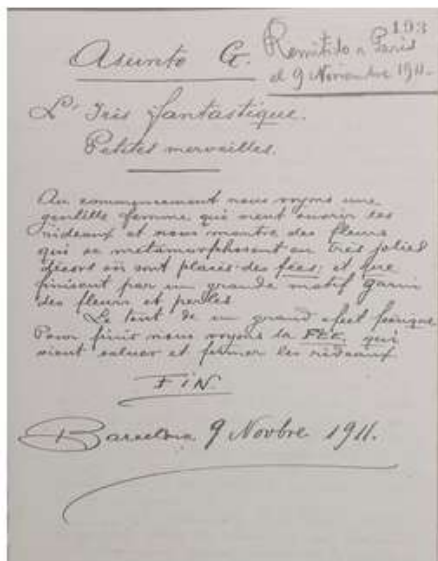 193
Asunto G. Remitido a Paris
el 9 Noviembre 1911.-
L'Iris fantastique.
Petites merveilles.
Au commencement nous voyons une
gentille femme qui vient ouvrir les
rideaux et nous montre des fleurs
qui se métamorphosent en très jolies
décors où sont placés des fées; et que
finisent par un grande motif garni
des fleurs et perles
Le tout de un grand efect feerique
Pour finir nous voyons la FÉE, qui
vient saluer et fermer les rideaux
FIN.
Barcelona 9 Novbre 1911.